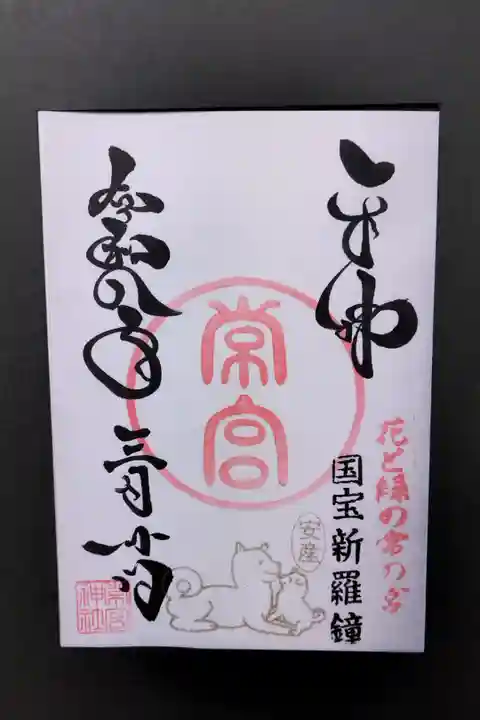 奉拝
花と緑の常の宮
国宝新羅鐘
常宮
安産
令和八年三月
常宮神社